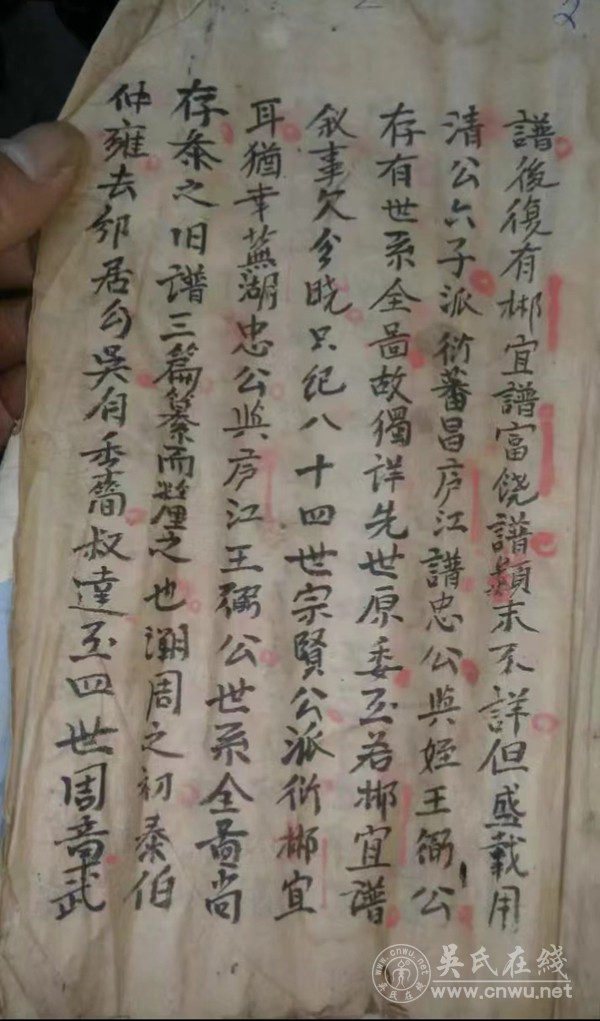 2
譜後復有郴宜譜富饶譜顛末不詳但盛載用
清公六子派衍蕃昌庐江譜忠公與姪王弼公
存有世系全啚故獨詳先世原委至若郴宜譜
叙事欠分晓只纪八十四世宗賢公派衍郴宜
耳猶幸蕪湖忠公與庐江王弼公世系全啚尚
存奈之旧譜三篇纂而釐之也溯周之初泰伯
仲雍去邠居勾吳自季簡叔達至四世周章武
吴氏在綫
www.cnwu.net